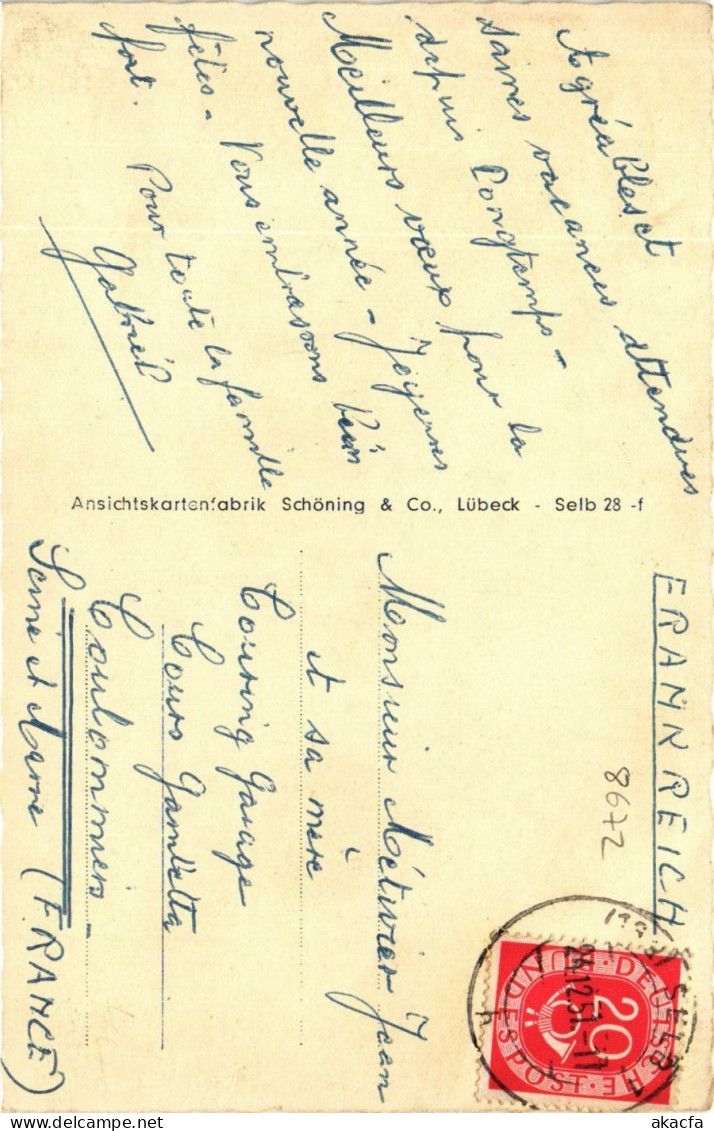 Agréables et
saines vacances attendues
depuis longtemps -
Meilleurs vœux pour la
nouvelle année - Joyeuses
fêtes - Vous embrassons bien
fort. Pour toute la famille
Gabriel
Ansichtskartenfabrik Schöning & Co., Lübeck - Selb 28 -f
FRANKREICH
8672
DEUTSCHE BUNDESPOST
20
SELB
24.12.51.-17
Monsieur Métivier Jean
et sa mère
Touring Garage
Cours Gambetta
Coulommiers -
Seine et Marne (FRANCE)
akacfa